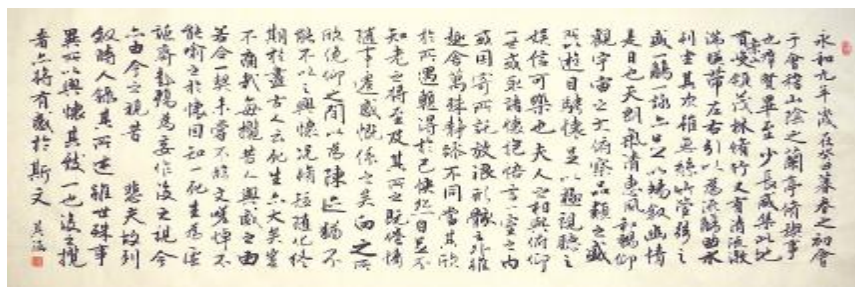 永和九年歲在癸丑暮春之初會
于會稽山陰之蘭亭脩禊事
也群賢畢至少長咸集此地
有崇山峻領茂林脩竹又有清流激
湍暎帶左右引以為流觴曲水
列坐其次雖無絲竹管弦之
盛一觴一詠亦足以暢敘幽情
是日也天朗氣清惠風和暢仰
觀宇宙之大俯察品類之盛
所以遊目騁懷足以極視聽之
娛信可樂也夫人之相與俯仰
一世或取諸懷抱悟言一室之內
或因寄所託放浪形骸之外雖
趣舍萬殊靜躁不同當其欣
於所遇輒得於己快然自足不
知老之將至及其所之既惓情
隨事遷感慨係之矣向之所
欣俛仰之間以為陳迹猶不
能不以之興懷況脩短隨化終
期於盡古人云死生亦大矣豈
不痛哉每攬昔人興感之由
若合一契未嘗不臨文嗟悼不
能喻之於懷固知一死生為虛
誕齊彭殤為妄作後之視今
亦由今之視昔 悲夫故列
敘時人錄其所述雖世殊事
異所以興懷其致一也後之攬
者亦將有感於斯文